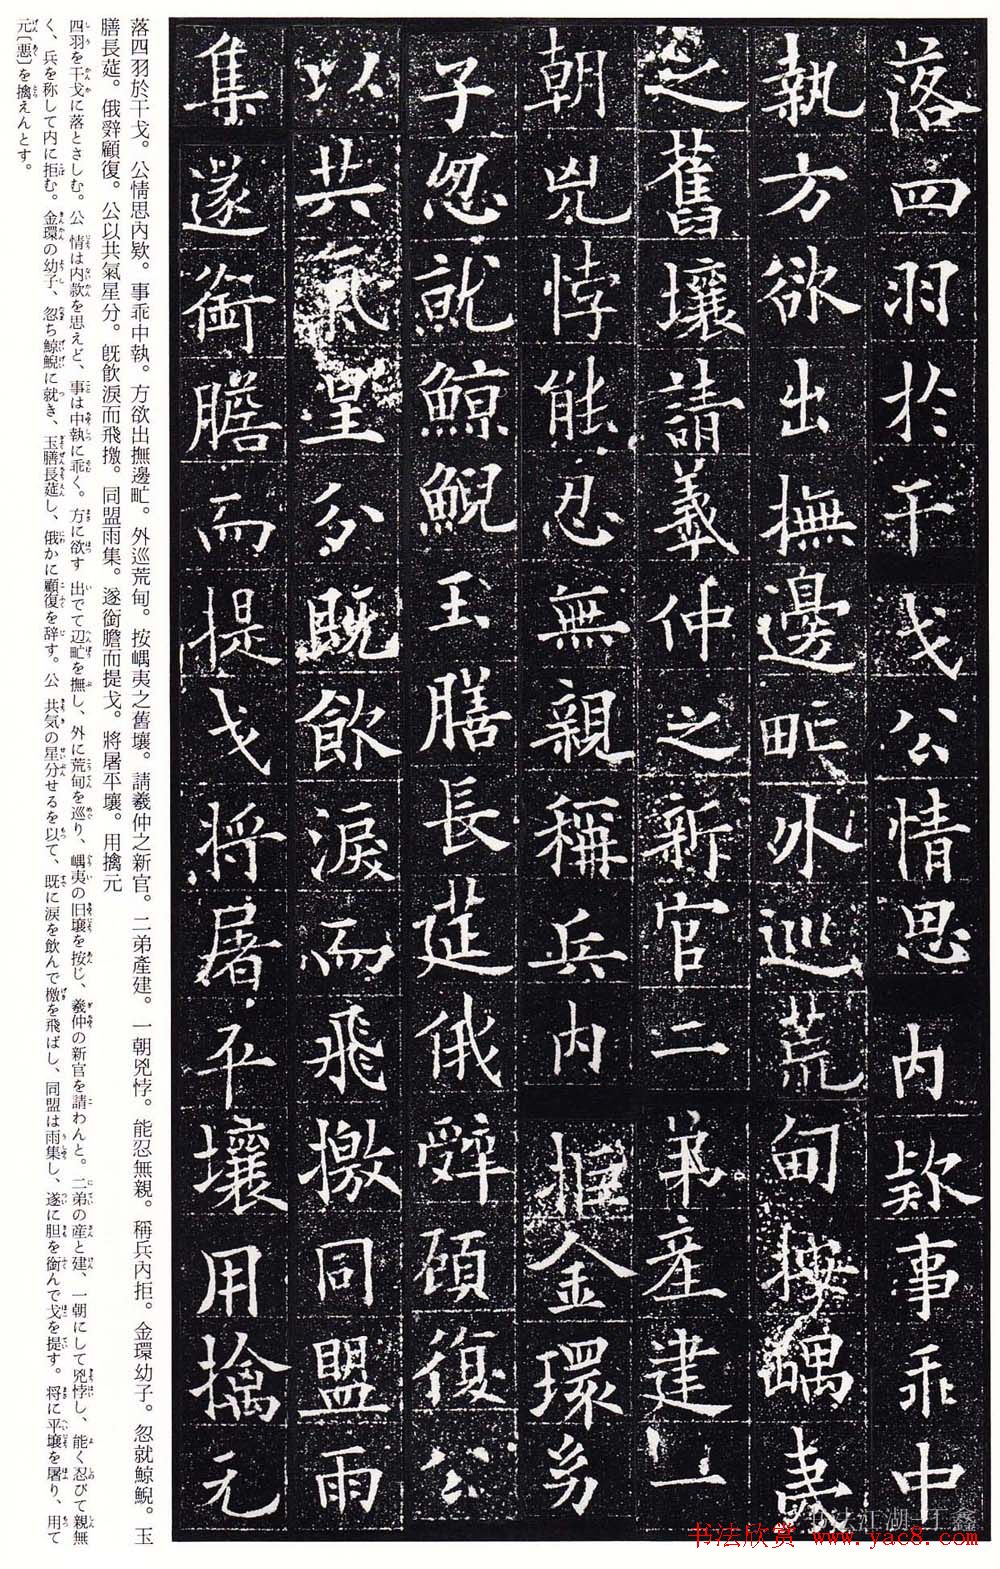 落四羽於干戈公情思內欵事乖中
執方欲出撫邊甿外巡荒甸按嵎夷
之舊壤請羲仲之新官二弟產建一
朝兇悖能忍無親稱兵內拒金環幼
子忽就鯨鯢玉膳長莚俄辤顧復公
以共氣星分既飲淚而飛撽同盟雨
集遂銜膽而提戈將屠平壤用擒元
落四羽於干戈。公情思內欵。事乖中執。方欲出撫邊甿。外巡荒甸。按嵎夷之舊壤。請羲仲之新官。二弟產建。一朝兇悖。能忍無親。稱兵內拒。金環幼子。忽就鯨鯢。玉
膳長莚。俄辤顧復。公以共氣星分。既飲淚而飛撽。同盟雨集。遂銜膽而提戈。將屠平壤。用擒元
四羽を干戈に落とさしむ。公 情は内款を思えど、事は中執に乖く。方に欲す 出でて辺甿を撫し、外に荒甸を巡り、嵎夷の旧壌を按じ、羲仲の新官を請わんと。二弟の産と建、一朝にして兇悖し、能く忍びて親無
く、兵を称して内に拒む。金環の幼子、忽ち鯨鯢に就き、玉膳長莚し、俄かに顧復を辞す。公 共気の星分せるを以て、既に涙を飲んで檄を飛ばし、同盟は雨集し、遂に胆を銜んで戈を提す。将に平壌を屠り、用て
元〔悪〕を擒えんとす。
书法欣赏 www.yac8.com